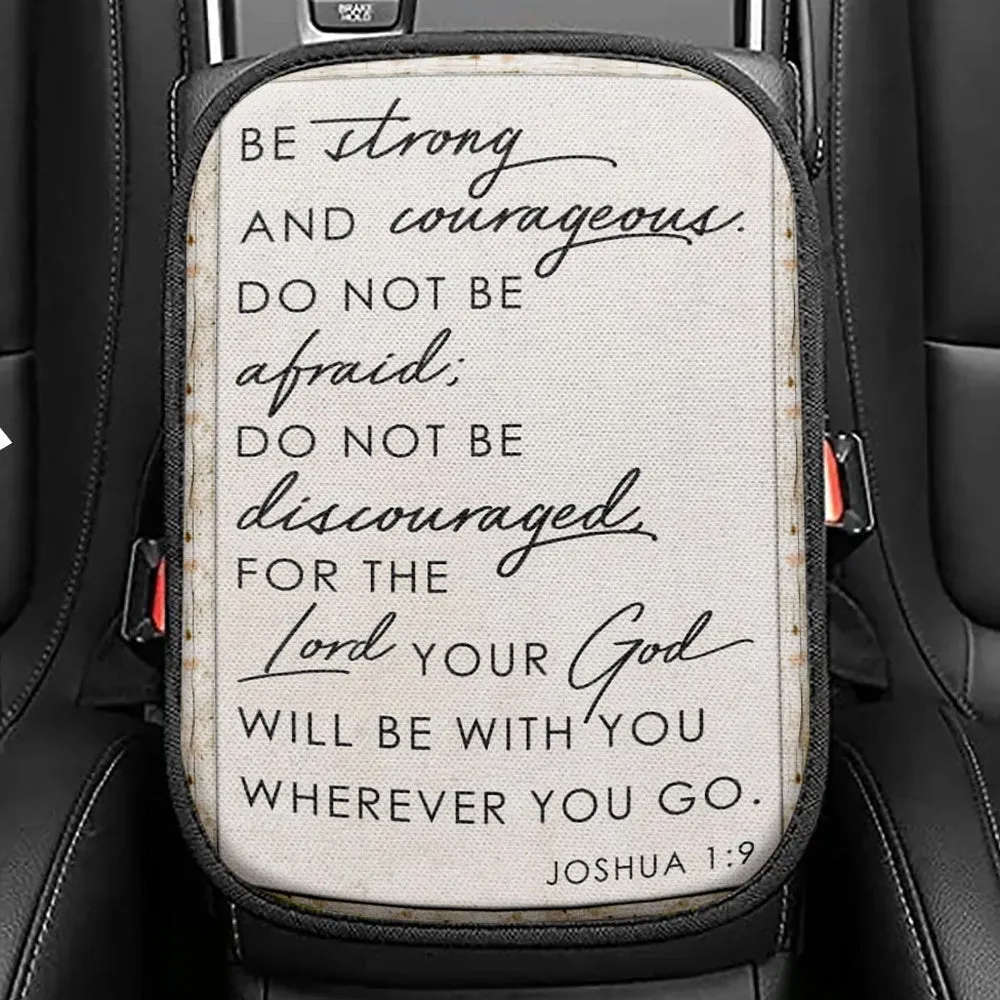 BRAKE
HOLD
BE strong
AND courageous.
DO NOT BE
afraid;
DO NOT BE
discouraged,
FOR THE
Lord YOUR God
WILL BE WITH YOU
WHEREVER YOU GO.
JOSHUA 1:9